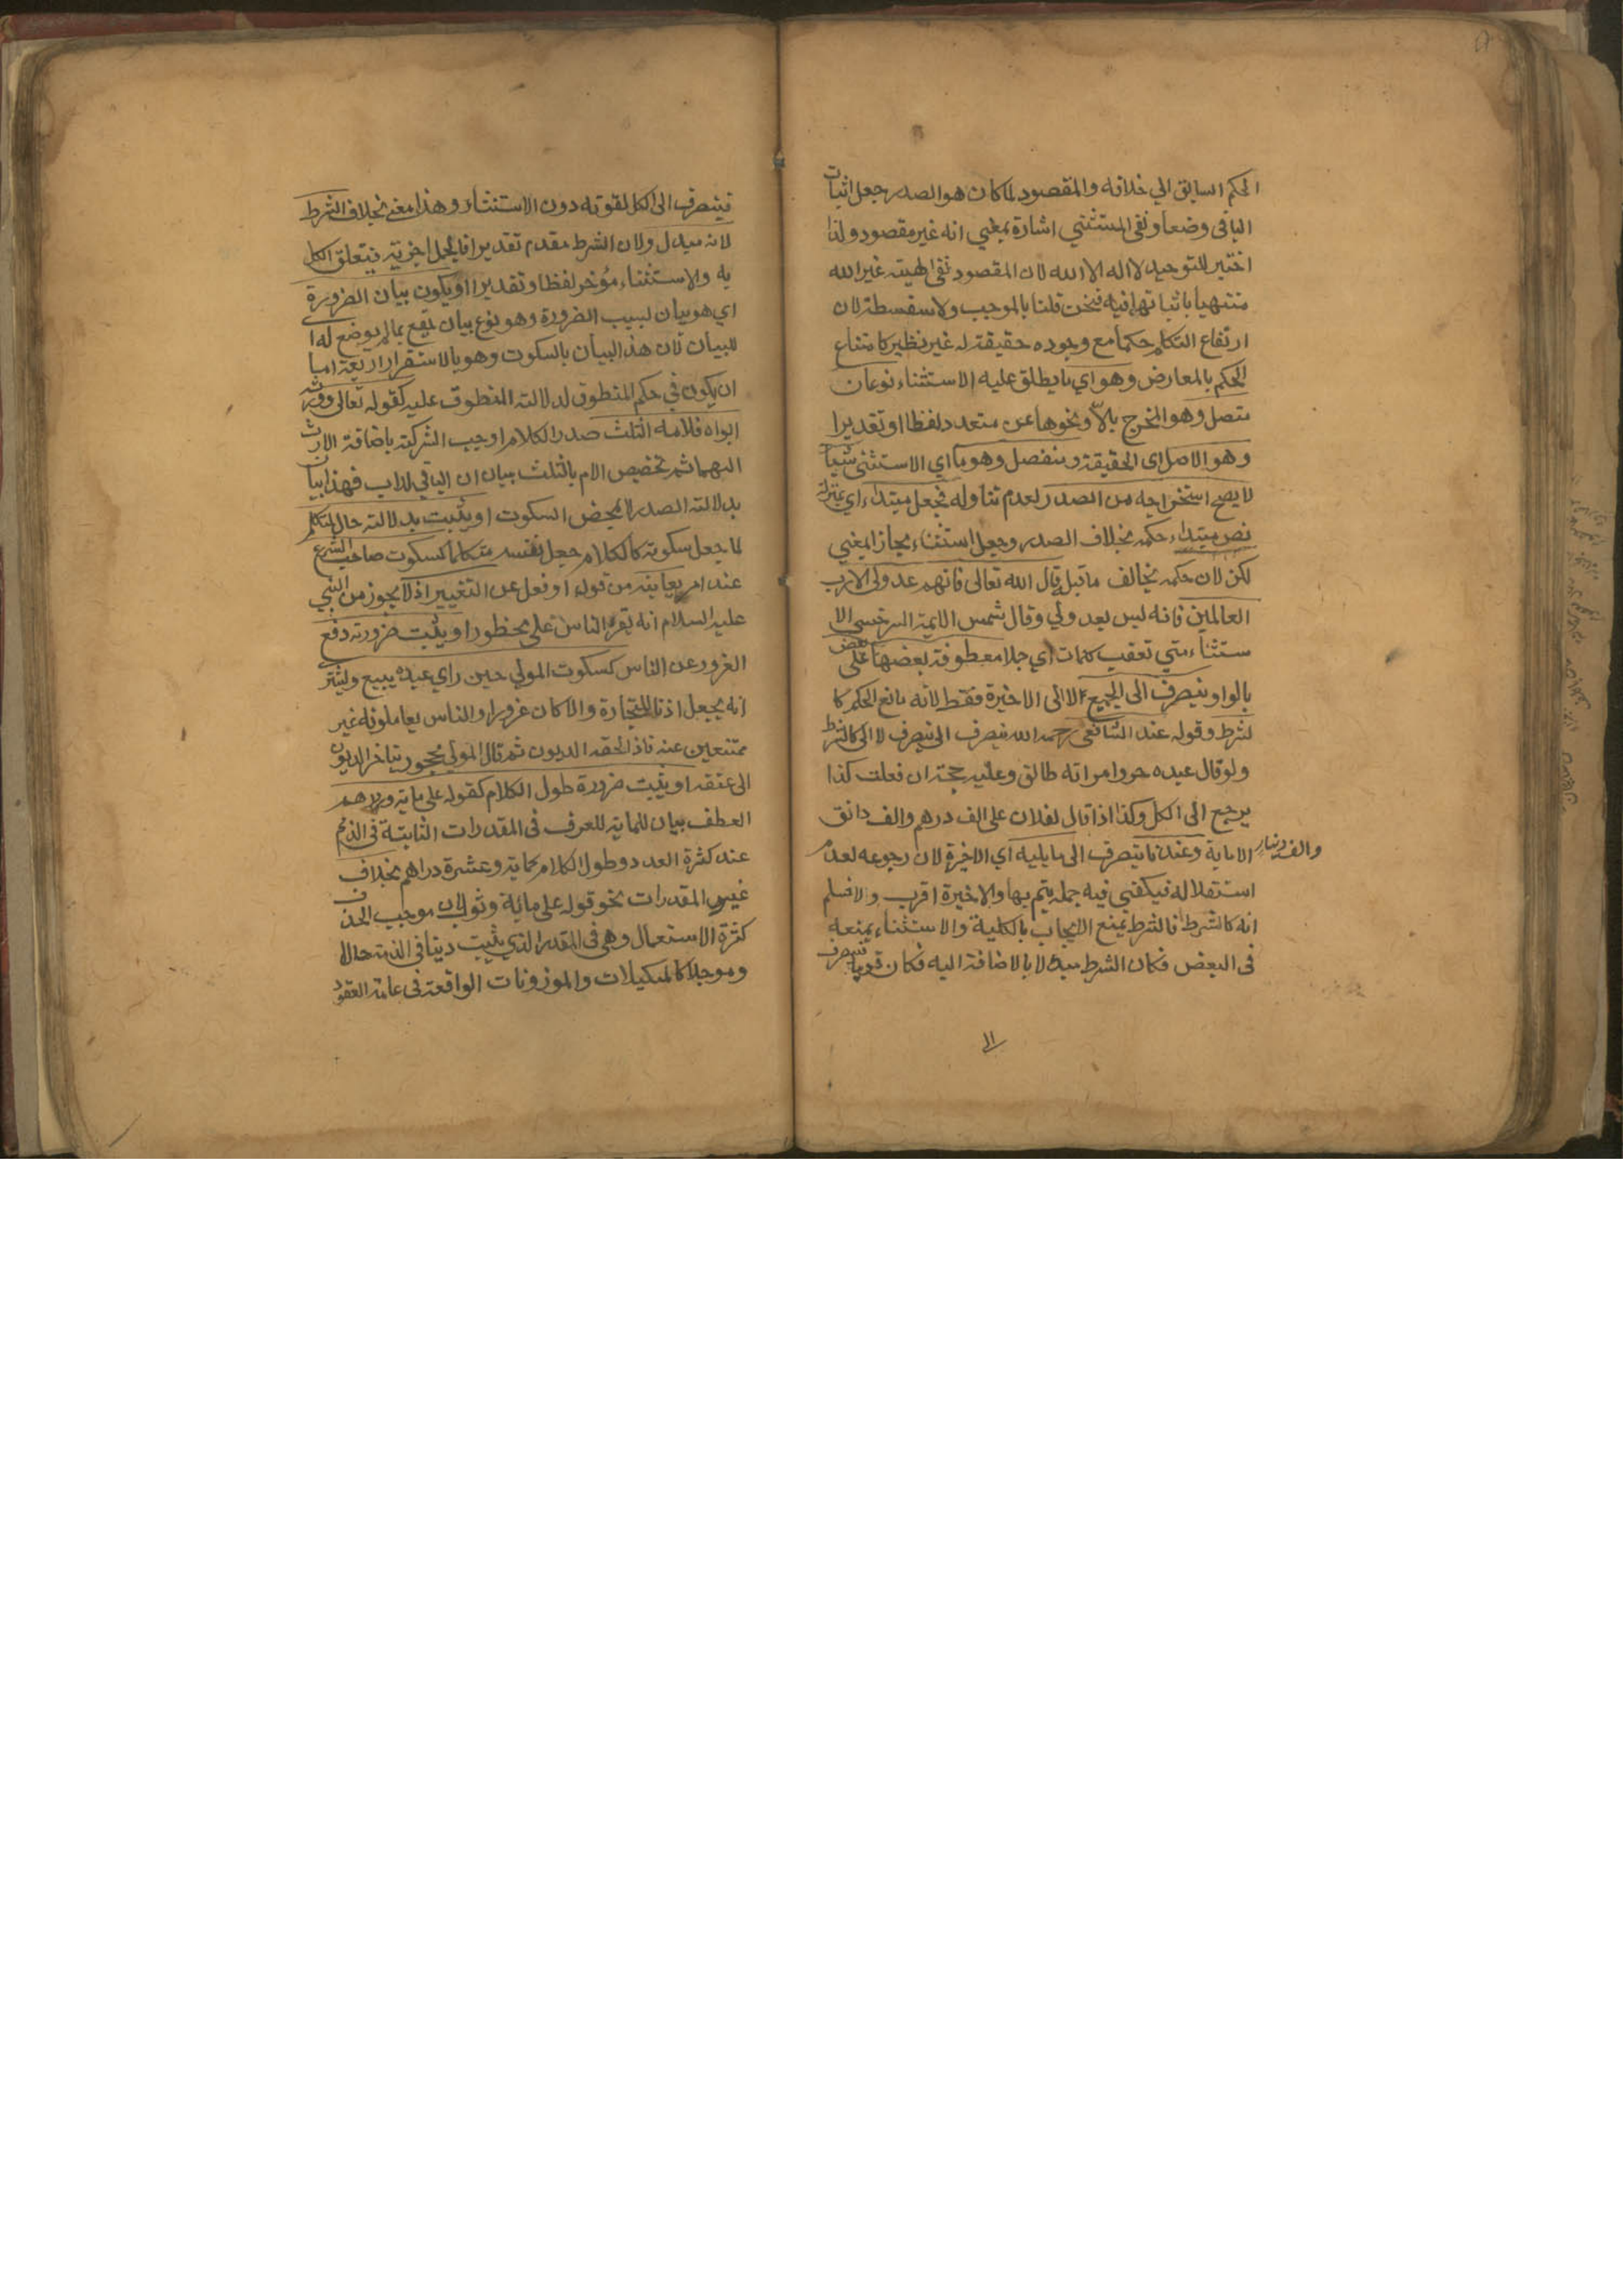 الحكم السابق الي خلافه والمقصود لما كان هو الصدر جعل اثبات
الباقي وضعا ونفي المستثني اشارة بمعني انه غير مقصود ولذا
اختير للتوحيد لا اله الا الله لان المقصود نفي الهيته غير الله
منتهيا باثباتها فيه فنحن قلنا بالموجب ولا سفسطة لان
ارتفاع التكلم حكما مع وجوده حقيقة له غير نظير كامتناع
الحكم بالمعارض وهو اي ما يطلق عليه الاستثناء نوعان
متصل وهو المخرج بالا ونحوها عن متعدد لفظا او تقديرا
وهو الاصل اي الحقيقة ومنفصل وهو ما اي الاستثني شيأ
لا يصح استخراجه من الصدر لعدم تناوله فجعل مبتداء اي بمنزلة
نص مبتداء حكمه بخلاف الصدر وجعل استثناء مجازا بمعني
لكن لان حكمه يخالف ما قبل قال الله تعالى فانهم عدو لي الا رب
العالمين فانه ليس بعد ولي وقال شمس الايمة السرخسي الا
ستثناء متي تعقب كلمات اي جملا معطوفة بعضها على بعض
بالواو ينصرف الى الجميع لا الى الاخيرة فقط لانه مانع الحكم كا
لشرط وقوله عند الشافعي رحمه الله ينصرف الى ينصرف لا الى كالشرط
ولو قال عبده حر وامراته طالق وعليه حجة ان فعلت كذا
يرجع الى الكل وكذا اذا قال لفلان علي الف درهم والف دانق
والف دينار الا ماية وعندنا ينصرف الى ما يليه اي الاخيرة لان رجوعه لعدم
استقلاله فيكتفي فيه جملة يتم بها والاخيرة اقرب ولا نسلم
انه كالشرط فالشرط يمنع الايجاب بالكلية والاستثناء يمنعه
في البعض فكان الشرط مبدلا بالاضافة اليه فكان قويا فينصرف
الى
فينصرف الى الكل لقوته دون الاستثناء وهذا معنى بخلاف الشرط
لانه مبدل ولان الشرط مقدم تقديرا فالجمل اجزية فيتعلق الكل
به والاستثناء مؤخر لفظا وتقديرا او يكون بيان الضرورة
اي هو بيان لسبب الضرورة وهو نوع بيان يقع بما لم يوضع له ا
للبيان لان هذا البيان بالسكوت وهو بالاستقرار اربعة اما
ان يكون في حكم المنطوق لدلالته المنطوق عليه كقوله تعالى وورثه
ابواه فلامه الثلث صدر الكلام اوجب الشركة باضافة الارث
اليهما ثم تخصيص الام بالثلث بيان ان الباقي للاب فهذا بيان
بدلالة الصدر لا بمحض السكوت او يثبت بدلالة حال المتكلم
لما جعل سكوته كالكلام جعل نفسه متكلما كسكوت صاحب الشرع
عند امر يعاينه من قول او فعل عن التغيير اذ لا يجوز من النبي
عليه السلام انه يقر الناس على محظور او يثبت ضرورة دفع
الغرور عن الناس كسكوت المولي حين راي عبده يبيع ويشتر
انه يجعل اذنا للتجارة والا كان غرورا والناس يعاملونه غير
ممتنعين عنه فاذا لحقه الديون ثم قال المولي محجور يتاخر الديون
الى عتقه او يثبت ضرورة طول الكلام كقوله علي ماية ودرهم
العطف بيان للماية للعرف في المقدرات الثابتة في الذمم
عند كثرة العدد وطول الكلام كماية وعشرة دراهم بخلاف
غير المقدرات نحو قوله علي مائة وثوب لان موجب الحذف
كثرة الاستعمال وهي في المقدر الذي يثبت دينا في الذمة حالا
وموجلا كالمكيلات والموزونات الواقعة في عامة العقود